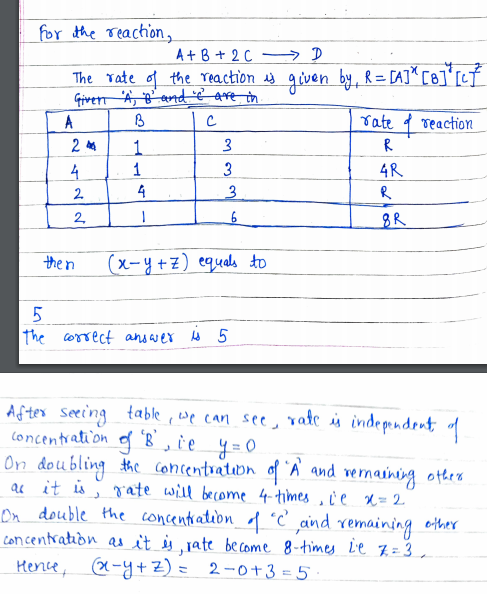 For the reaction,
A + B + 2C ⟶ D
The rate of the reaction is given by, R = [A]^x [B]^y [C]^z
Given 'A', 'B' and 'C' are in
A B C rate of reaction
2 1 3 R
4 1 3 4R
2 4 3 R
2 1 6 8R
then (x-y+z) equals to
5
The correct answer is 5
After seeing table, we can see, rate is independent of
concentration of 'B', i.e y=0
On doubling the concentration of 'A' and remaining other
as it is, rate will become 4-times, i.e x=2
On double the concentration of 'C', and remaining other
concentration as it is, rate become 8-times i.e z=3,
Hence, (x-y+z) = 2-0+3 = 5.